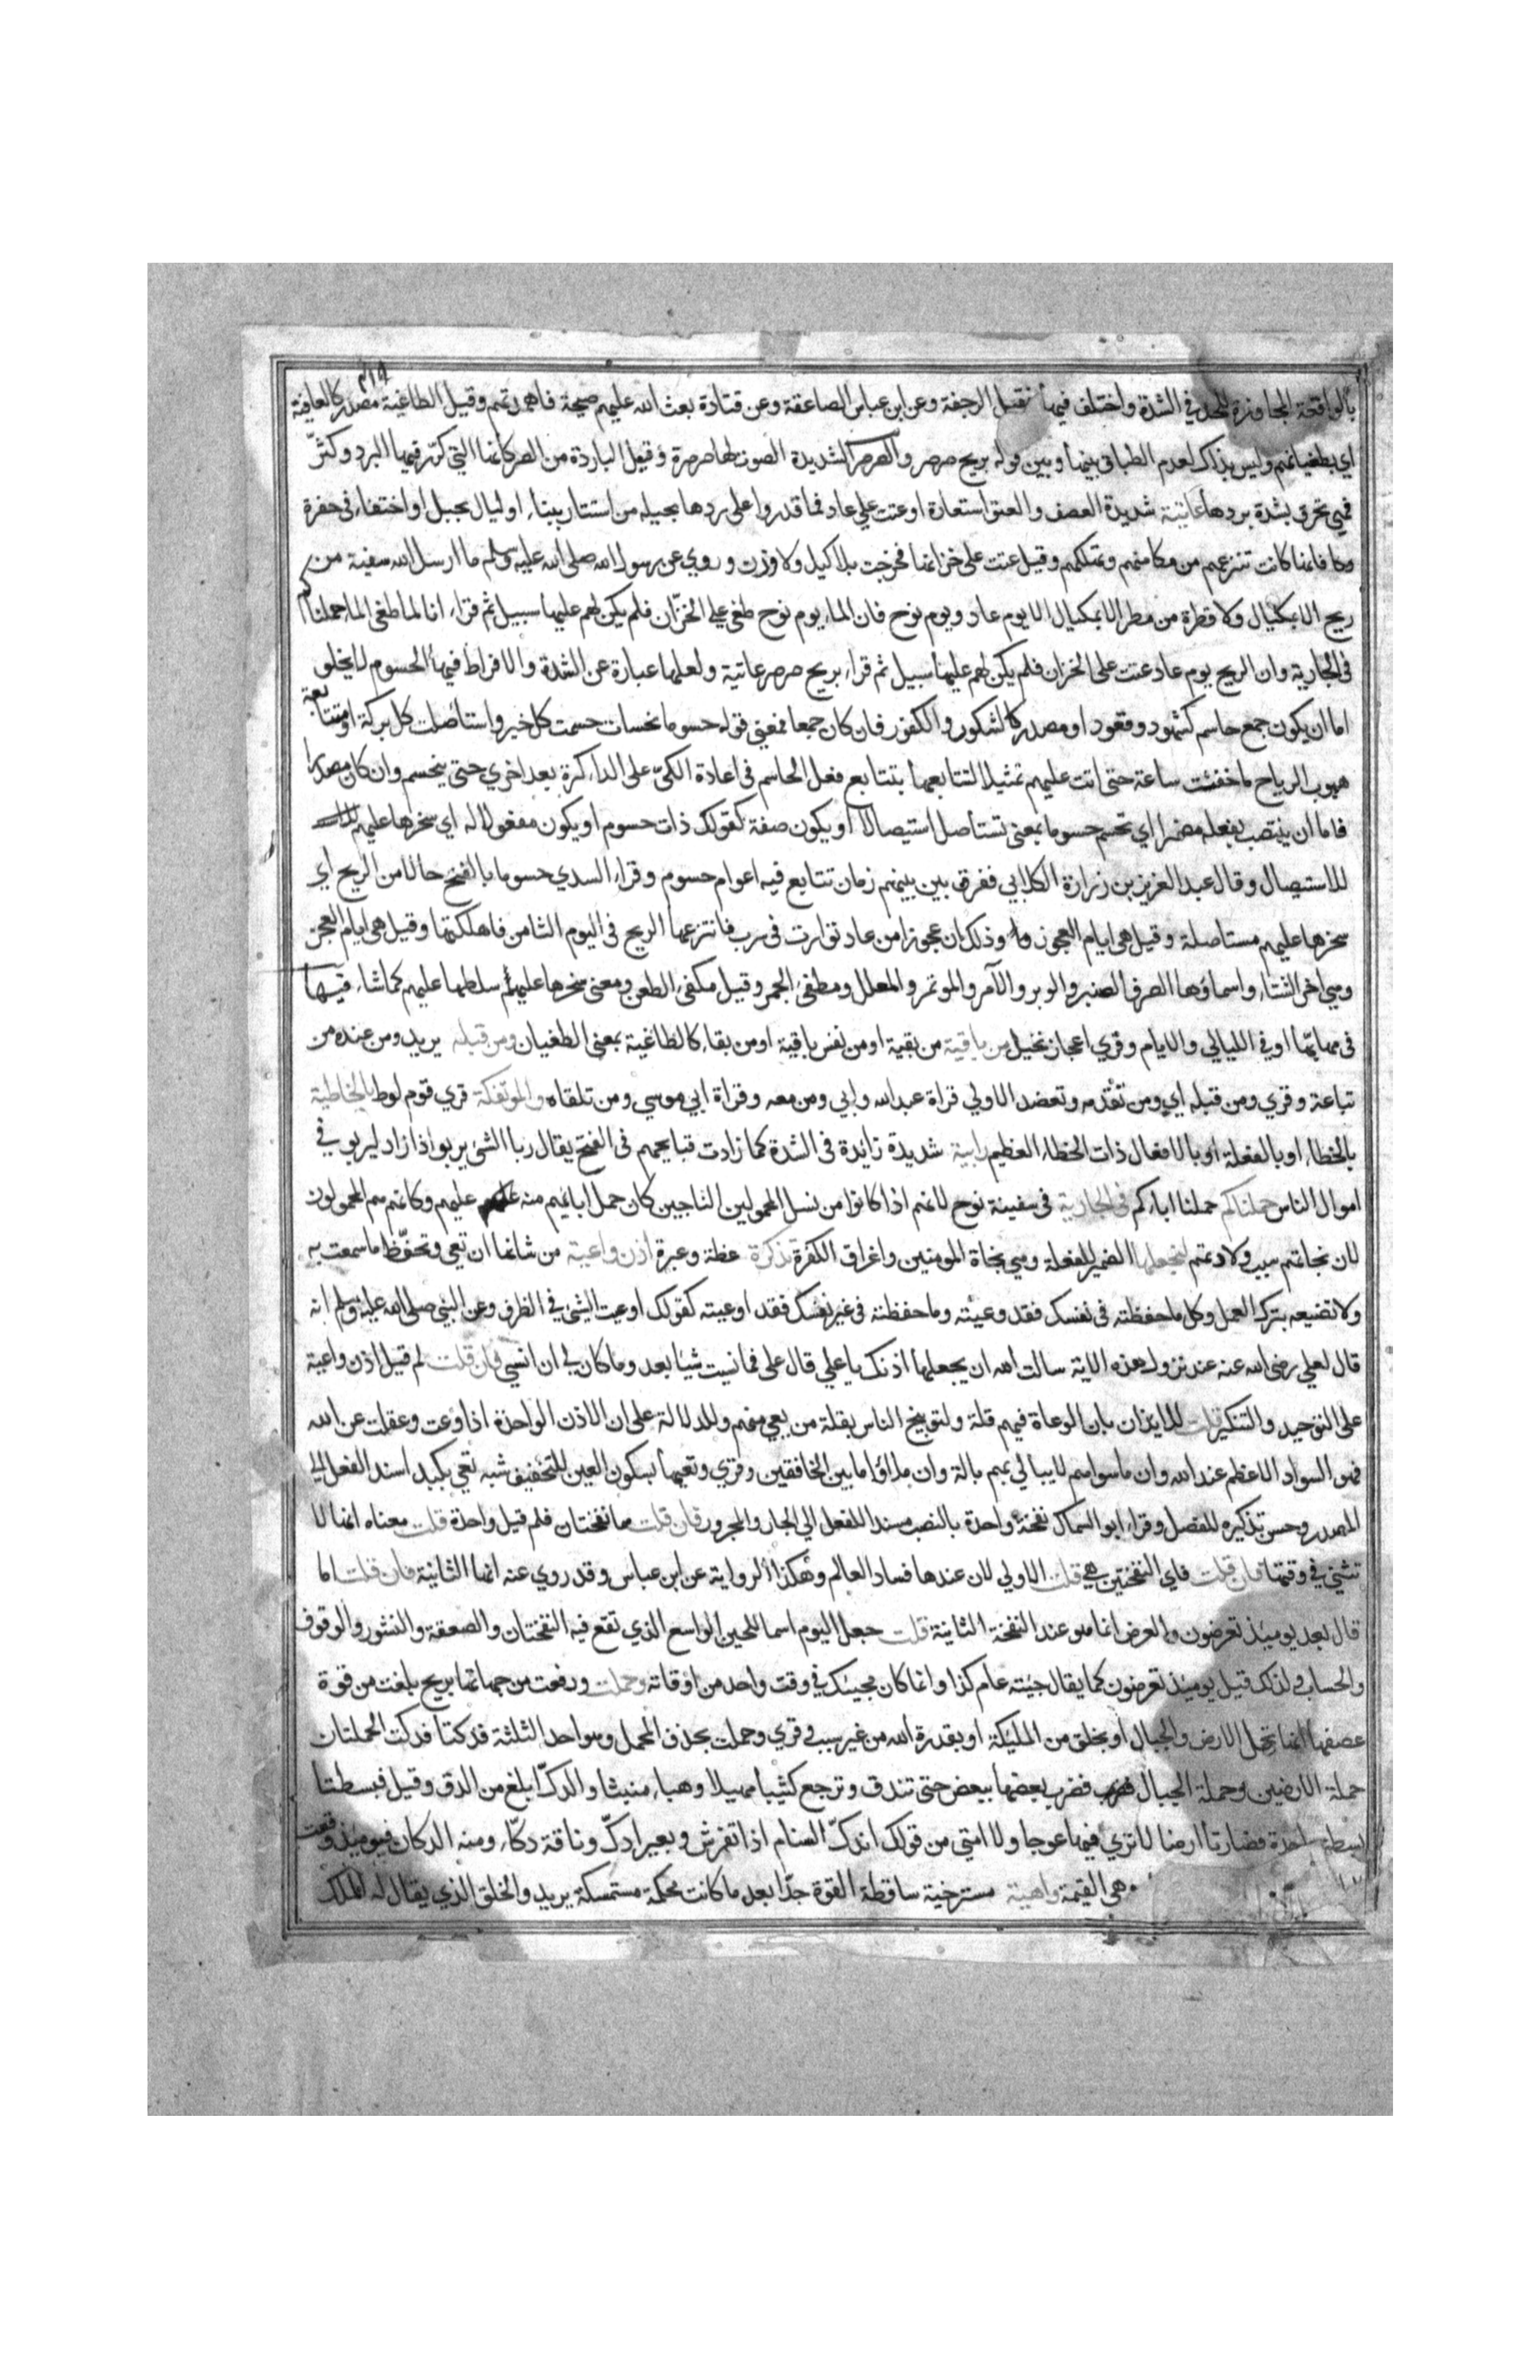 بالواقعة المجاوزة للحد في الشدة واختلف فيها فقيل الرجفة وعن ابن عباس الصاعقة وعن قتادة بعث الله عليهم صيحة فاهمدتهم وقيل الطاغية مصدر كالعافية
اي بطغيانهم وليس بذاك لعدم الطباق بينها وبين قوله بريح صرصر والصرصر الشديدة الصوت لها صرصرة وقيل الباردة من الصر كانها التي كرر فيها البرد وكثر
فهي تحرق بشدة بردها عاتية شديدة العصف والعتو استعارة او عتت علي عاد فما قدروا على ردها بحيلة من استتار ببناء او لياذ بجبل او اختفاء في حفرة
فانها كانت تنزعهم من مكامنهم وتهلكهم وقيل عتت على خزانها فخرجت بلا كيل ولا وزن وروي عن رسول الله صلى الله عليه وسلم ما ارسل الله سفينة من
ريح الا بمكيال ولا قطرة من مطر الا بمكيال الا يوم عاد ويوم نوح فان الماء يوم نوح طغى علي الخزان فلم يكن لهم عليها سبيل ثم قراء انا لما طغى الماء حملناكم
في الجارية وان الريح يوم عاد عتت على الخزان فلم يكن لهم عليها سبيل ثم قراء بريح صرصر عاتية ولعلها عبارة عن الشدة والافراط فيها الحسوم لا يخلق
اما ان يكون جمع حاسم كشهود وقعود او مصدر كالشكور والكفور فان كان جمعا فمعنى قوله حسوما نحسات حسمت كل خير واستاصلت كل بركة او متتابعة
هبوب الرياح ما خفتت ساعة حتى اتت عليهم تمثيلا لتتابعها بتتابع فعل الحاسم في اعادة الكي على الداء كرة بعد اخري حتى ينحسم وان كان مصدرا
فاما ان ينتصب بفعله مضمرا اي تحسم حسوما بمعنى تستاصل استيصالا او يكون صفة كقولك ذات حسوم او يكون مفعولا له اي سخرها عليهم
للاستيصال وقال عبد العزيز بن زرارة الكلابي ففرق بين بينهم زمان تتابع فيه اعوام حسوم وقراء السدي حسوما بالفتح حالا من الريح اي
سخرها عليهم مستاصلة وقيل هي ايام العجوز وذلك ان عجوزا من عاد توارت في سرب فانتزعها الريح في اليوم الثامن فاهلكتها وقيل هي ايام العجز
وهي اخر الشتاء واسماؤها الصر والصنبر والوبر والآمر والموتمر والمعلل ومطفئ الجمر وقيل مكفئ الظعن ومعنى سخرها عليهم سلطها عليهم كما شاء فيها
في مهابها او في الليالي والايام وقري اعجاز نخيل من باقية من بقية او من نفس باقية او من بقاء كالطاغية بمعنى الطغيان ومن قبله يريد ومن عنده من
تباعة وقري ومن قبله اي ومن تقدمه وتعضد الاولي قراة عبد الله وابي ومن معه وقراة ابي موسي ومن تلقاه والموتفكة قري قوم لوط بالخاطية
بالخطاء او بالفعلة او بالافعال ذات الخطاء العظيم رابية شديدة زائدة في الشدة كما زادت قبايحهم في القبح يقال ربا الشئ يربو اذا زاد ليربو في
اموال الناس حملناكم حملنا اباءكم في الجارية في سفينة نوح لانهم اذا كانوا من نسل المحمولين الناجين كان حمل ابايهم منه عليهم وكانهم هم المحمولون
لان نجاتهم سبب ولادتهم لنجعلها الضمير للفعلة وهي نجاة المومنين واغراق الكفرة تذكرة عظة وعبرة اذن واعية من شانها ان تعي وتحفظ ما سمعت به
ولا تضيعه بترك العمل وكل ما حفظته في نفسك فقد وعيته وما حفظته في غير نفسك فقد اوعيته كقولك اوعيت الشئ في الظرف وعن النبي صلى الله عليه وسلم انه
قال لعلي رضي الله عنه عند نزول هذه الاية سالت الله ان يجعلها اذنك يا علي قال على فما نسيت شيا بعد وما كان لي ان انسي فان قلت لم قيل اذن واعية
على التوحيد والتنكير قلت للايذان بان الوعاة فيهم قلة ولتوبيخ الناس بقلة من يعي منهم وللدلالة على ان الاذن الواحدة اذا وعت وعقلت عن الله
فهو السواد الاعظم عند الله وان ما سواهم لا يبالي بهم بالة وان ملاؤا ما بين الخافقين وقري وتعيها بسكون العين للتخفيف شبه تعي بكبد اسند الفعل الي
المصدر وحسن تذكيره للفصل وقراء ابو السماك نفخة واحدة بالنصب مسندا للفعل الي الجار والمجرور فان قلت هما نفختان فلم قيل واحدة قلت معناه انها لا
تثني في وقتها فان قلت فاي النفختين هي قلت الاولي لان عندها فساد العالم وهكذا الرواية عن ابن عباس وقد روي عنه انها الثانية فان قلت اما
قال بعد يوميذ تعرضون والعرض انما هو عند النفخة الثانية قلت جعل اليوم اسما للحين الواسع الذي تقع فيه النفختان والصعقة والنشور والوقوف
والحساب فلذلك قيل يوميذ تعرضون كما يقال جيته عام كذا وانما كان مجيئك في وقت واحد من اوقاته وحملت ورفعت من جهاتها بريح بلغت من قوة
عصفها انها تحمل الارض والجبال او بخلق من المليكة او بقدرة الله من غير سبب وقري وحملت بحذف المحمل وهو احد الثلثة فدكتا فدكت الحملتان
حملة الارضين وحملة الجبال فضرب بعضها ببعض حتى تندق وترجع كثيبا مهيلا وهباء منبثا والدك ابلغ من الدق وقيل فبسطتا
بسطة واحدة فصارتا ارضا لا تري فيها عوجا ولا امتي من قولك اندك السنام اذا تفرش وبعير ادك وناقة دكاء ومنه الدكان فيوميذ وقعت
هي القيمة واهية مسترخية ساقطة القوة جدا بعد ما كانت محكمة مستمسكة يريد والخلق الذي يقال له الملك